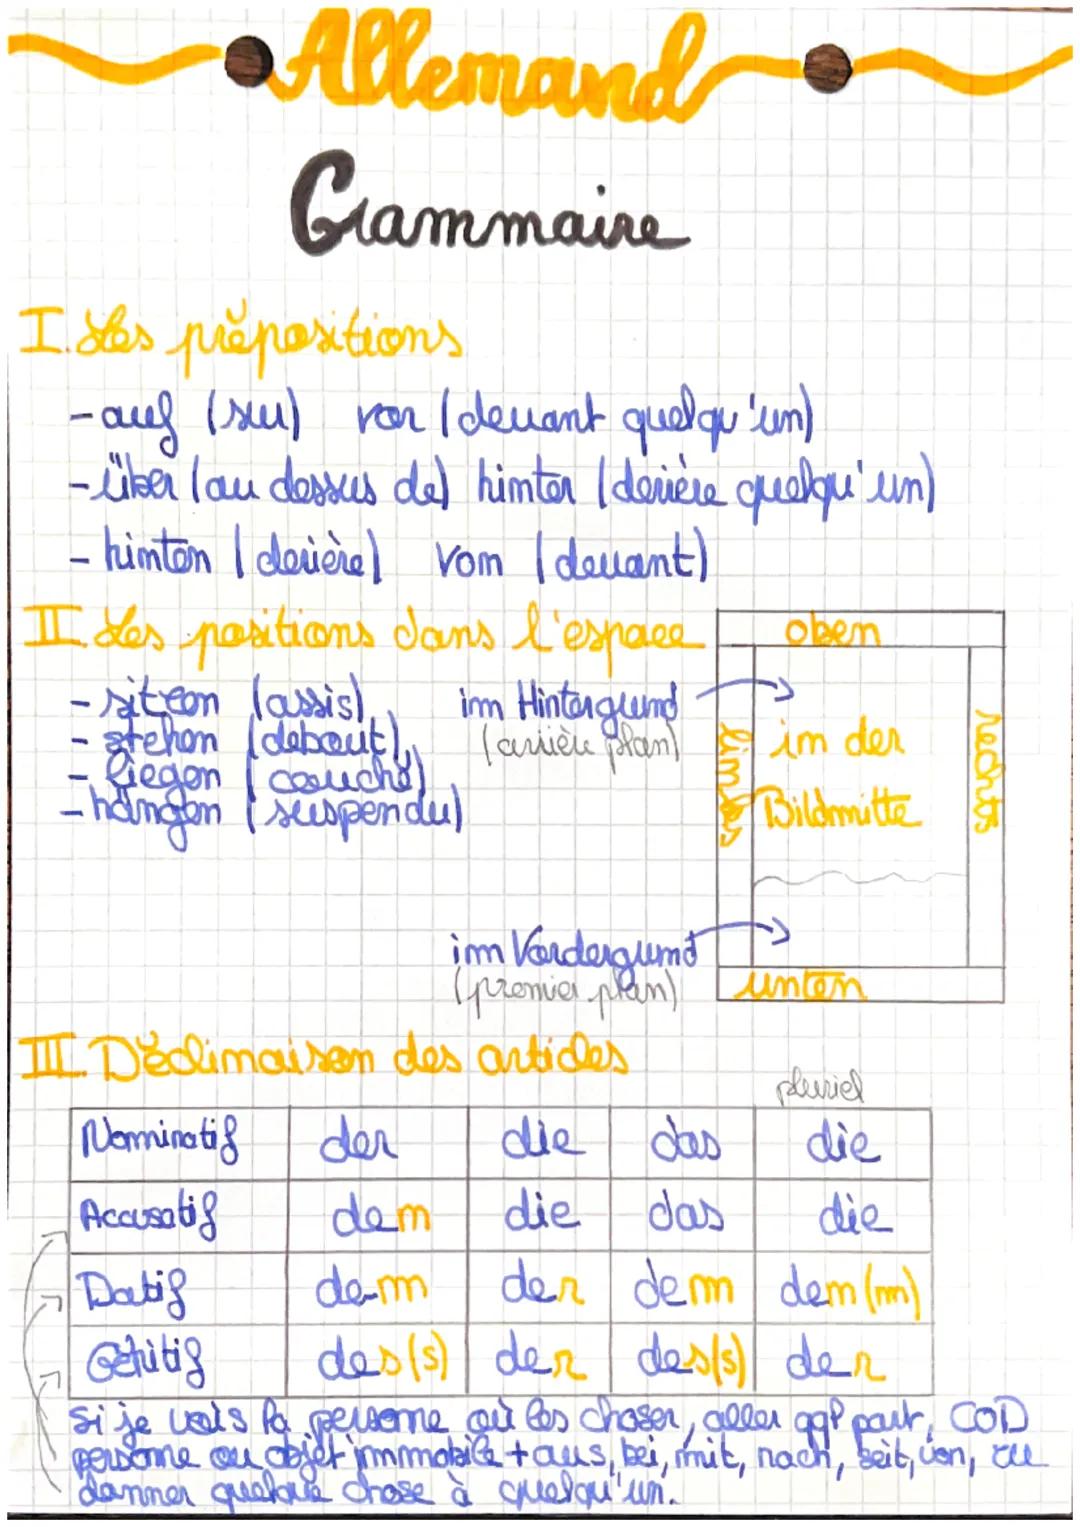 Allemand
Grammaire
I. Les prépositions
- auf (sur) vor (devant quelqu'un)
- über (au dessus de) hinter (derière quelqu'un)
- hinten (derière) vorn (devant)
II. Les positions dans l'espace
oben
- sitzen (assis)
im Hintergrund
- stehen (debout)
(arrière plan)
- liegen (couché)
- hängen (suspendu)
links
in der
Bildmitte
rechts
im Vordergrund
(premier plan)
unten
III. Déclinaison des articles
pluriel
Nominatif der die das die
Accusatif den die das die
Datif dem der dem den (n)
Génitif des (s) der des (s) der
Si je vois la personne où les choses, aller qqpart, COD
personne ou objet immobile + aus, bei, mit, nach, seit, von, zu
donner quelque chose à quelqu'un.